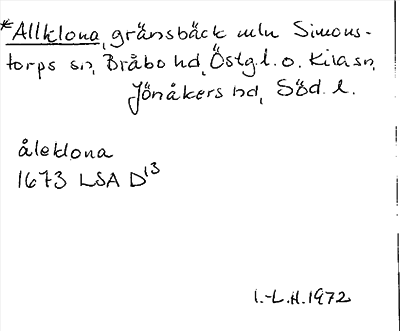 *Allklona, gränsbäck mln Simons-
torps sn, Bråbo hd, Östg.l. o. Kila sn,
Jönåkers hd, Söd. l.
åleklona
1673 LSA D¹³
I.-L.H. 1972